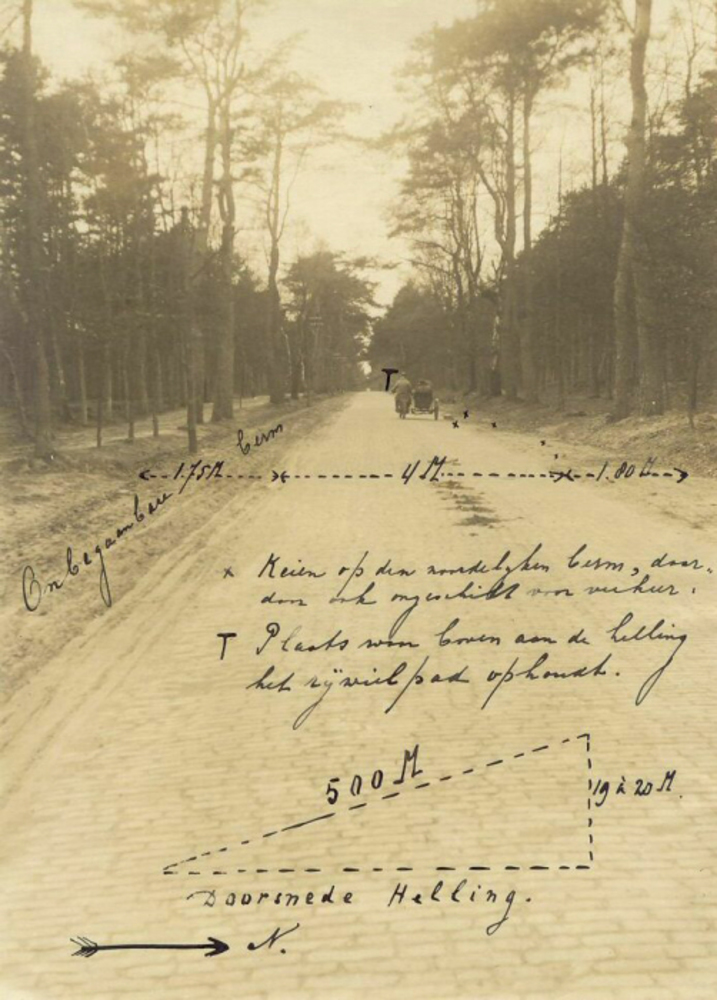 T
Onbegaanbare berm
1.75 M 4 M. 1.80 M.
x Keien op den noordelyken berm, daar-
door ook ongeschikt voor verkeer.
T Plaats waar boven aan de helling
het rijwielpad ophoudt.
500 M
19 à 20 M.
Doorsnede Helling.
N.